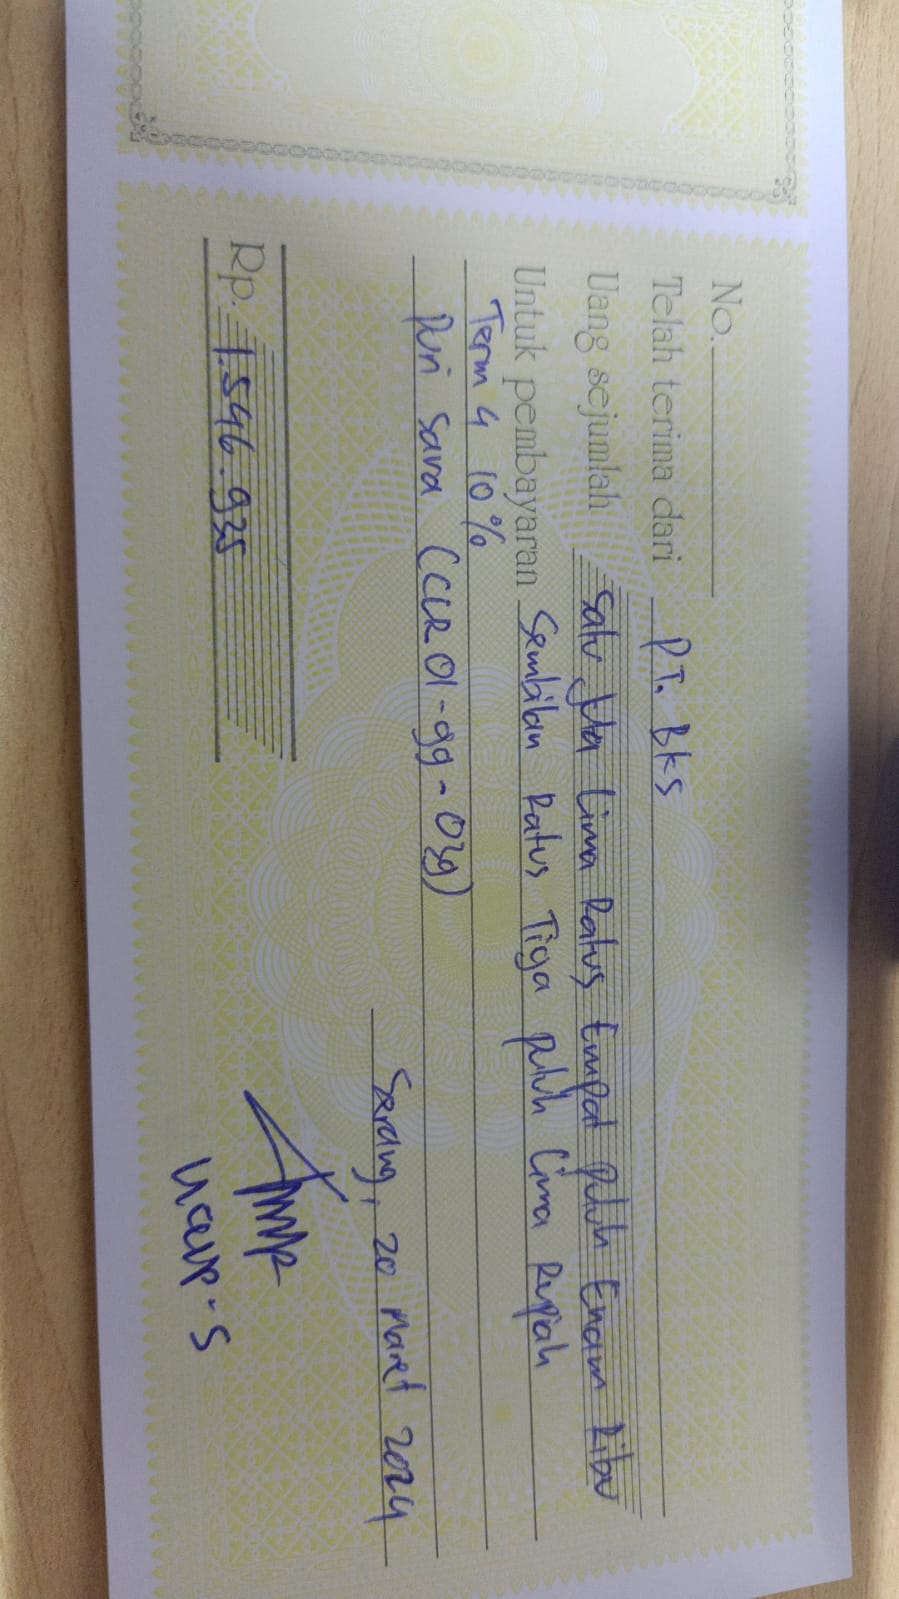 No.
Telah terima dari P.T. BKS
Uang sejumlah Satu Juta Lima Ratus Empat puluh Enam Ribu
Untuk pembayaran Sembilan Ratus Tiga puluh Lima Rupiah
Term 4 10%
Puri Sava (CLR 01-99-039)
Serang, 20 Maret 2024
Rp. 1.546.935
Ucup.S